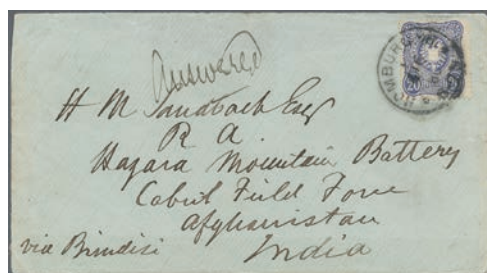 Answered
HOMBURG
20
H M Sandbach Esq
R A
Hazara Mountain Battery
Cabul Field Force
Afghanistan
via Brindisi India